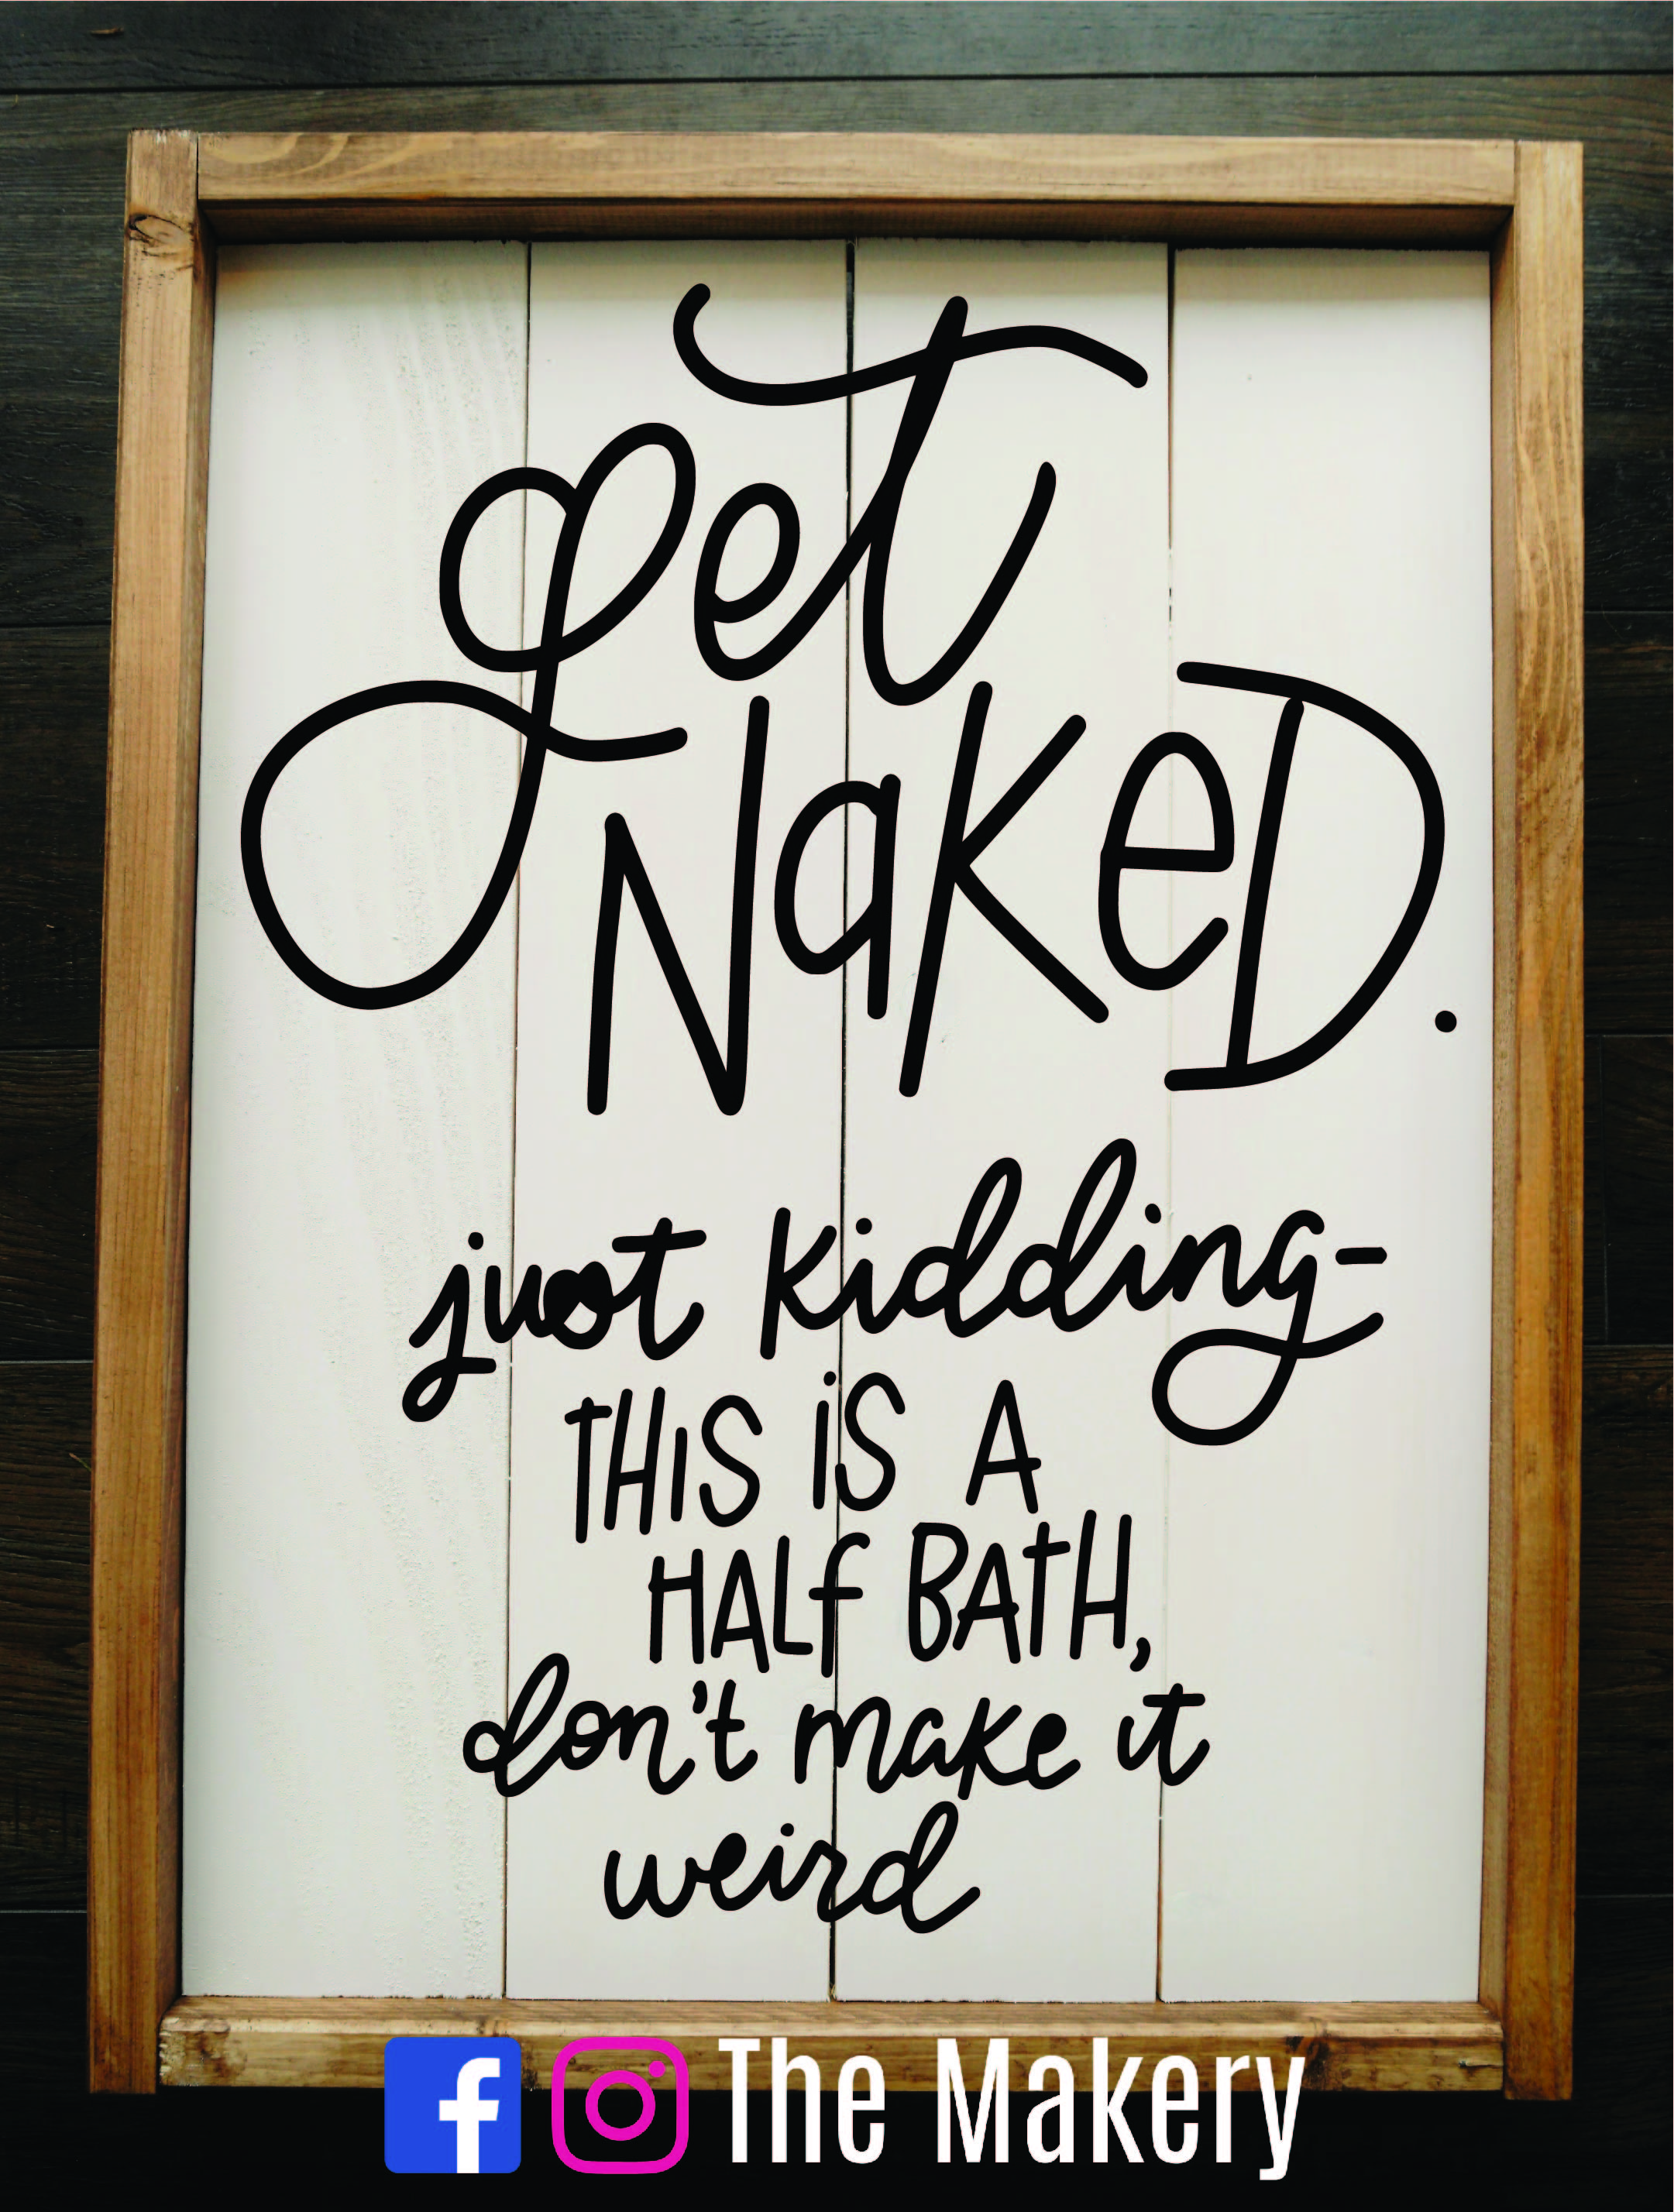 get
NakeD.
just kidding-
THiS iS A
HALf BATH,
don't make it
weird
f The Makery